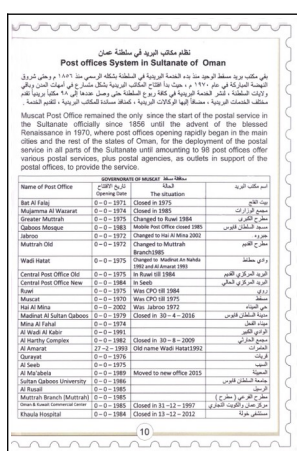 نظام مكاتب البريد في سلطنة عمان
Post offices System in Sultanate of Oman
بقي مكتب بريد مسقط الوحيد منذ بدء الخدمة البريدية في السلطنة بشكله الرسمي منذ ١٨٥٦ م وحتى شروق
النهضة المباركة في عام ١٩٧٠ م ، حيث بدأ افتتاح المكاتب البريدية بشكل متسارع في أمهات المدن وباقي
ولايات السلطنة ، لتنشر الخدمة البريدية في كافة ربوع السلطنة حتى وصل عددها إلى ٩٨ مكتباً بريدياً تقدم
مختلف الخدمات البريدية ، مضافاً إليها الوكالات البريدية ، كمنافذ مساندة للمكاتب البريدية ، لتقديم الخدمة .
Muscat Post Office remained the only since the start of the postal service in
the Sultanate officially since 1856 until the advent of the blessed
Renaissance in 1970, where post offices opening rapidly began in the main
cities and the rest of the states of Oman, for the deployment of the postal
service in all parts of the Sultanate until amounting to 98 post offices offer
various postal services, plus postal agencies, as outlets in support of the
postal offices, to provide the service.
GOVERNORATE OF MUSCAT محافظة مسقط
Name of Post Office تاريخ الافتتاح Opening Date الحالة The situation اسم مكتب البريد
Bat Al Falaj 0 – 0 – 1971 Closed in 1975 بيت الفلج
Mujamma Al Wazarat 0 – 0 – 1974 Closed in 1985 مجمع الوزارات
Greater Muttrah 0 – 0 – 1975 Changed to Ruwi 1984 مطرح الكبرى
Qaboos Mosque 0 – 0 – 1983 Mobile Post Office closed 1985 مسجد السلطان قابوس
Jabroo 0 – 0 – 1972 Changed to Hai Al Mina 2002 جبروه
Muttrah Old 0 – 0 – 1972 Changed to Muttrah Branch1985 مطرح القديم
Wadi Hatat 0 – 0 – 1975 Changed to Madinat An Nahda 1992 and Al Amarat 1993 وادي حطاط
Central Post Office Old 0 – 0 – 1975 In Ruwi till 1984 البريد المركزي القديم
Central Post Office New 0 – 0 – 1984 In Seeb البريد المركزي الحالي
Ruwi 0 – 0 – 1975 Was CPO till 1984 روي
Muscat 0 – 0 – 1970 Was CPO till 1975 مسقط
Hai Al Mina 0 – 0 – 2002 Was Jabroo 1972 حي الميناء
Madinat Al Sultan Qaboos 0 – 0 – 1979 Closed in 30 – 4 – 2016 مدينة السلطان قابوس
Mina Al Fahal 0 – 0 – 1974 ميناء الفحل
Al Wadi Al Kabir 0 – 0 – 1991 الوادي الكبير
Al Harthy Complex 0 – 0 – 1982 Closed in 30 – 8 – 2009 مجمع الحارثي
Al Amarat 27 –2 – 1993 Old name Wadi Hatat1992 العامرات
Qurayat 0 – 0 – 1976 قريات
Al Seeb 0 – 0 – 1975 السيب
Al Ma'abela 0 – 0 – 1989 Moved to new office 2015 المعبيلة
Sultan Qaboos University 0 – 0 – 1986 جامعة السلطان قابوس
Al Rusail 0 – 0 – 1985 الرسيل
Muttrah Branch (Muttrah) 0 – 0 – 1985 مطرح الفرعي ( مطرح )
Oman & Kuwait Commercial Center 0 – 0 – 1985 Closed in 31 –12 – 1997 مركز عمان والكويت التجاري
Khaula Hospital 0 – 0 – 1984 Closed in 13 –12 – 2012 مستشفى خولة
10